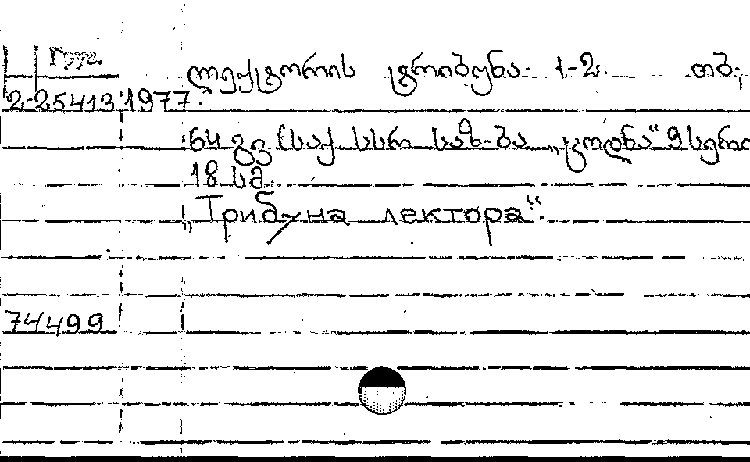 Груз.
ლექტორის ტრიბუნა. 1-2. თბ.
2-25413 1977.
64 გვ (საქ სსრ საზ-ბა „ცოდნა“
18 სმ.
„Трибуна лектора“.
74499